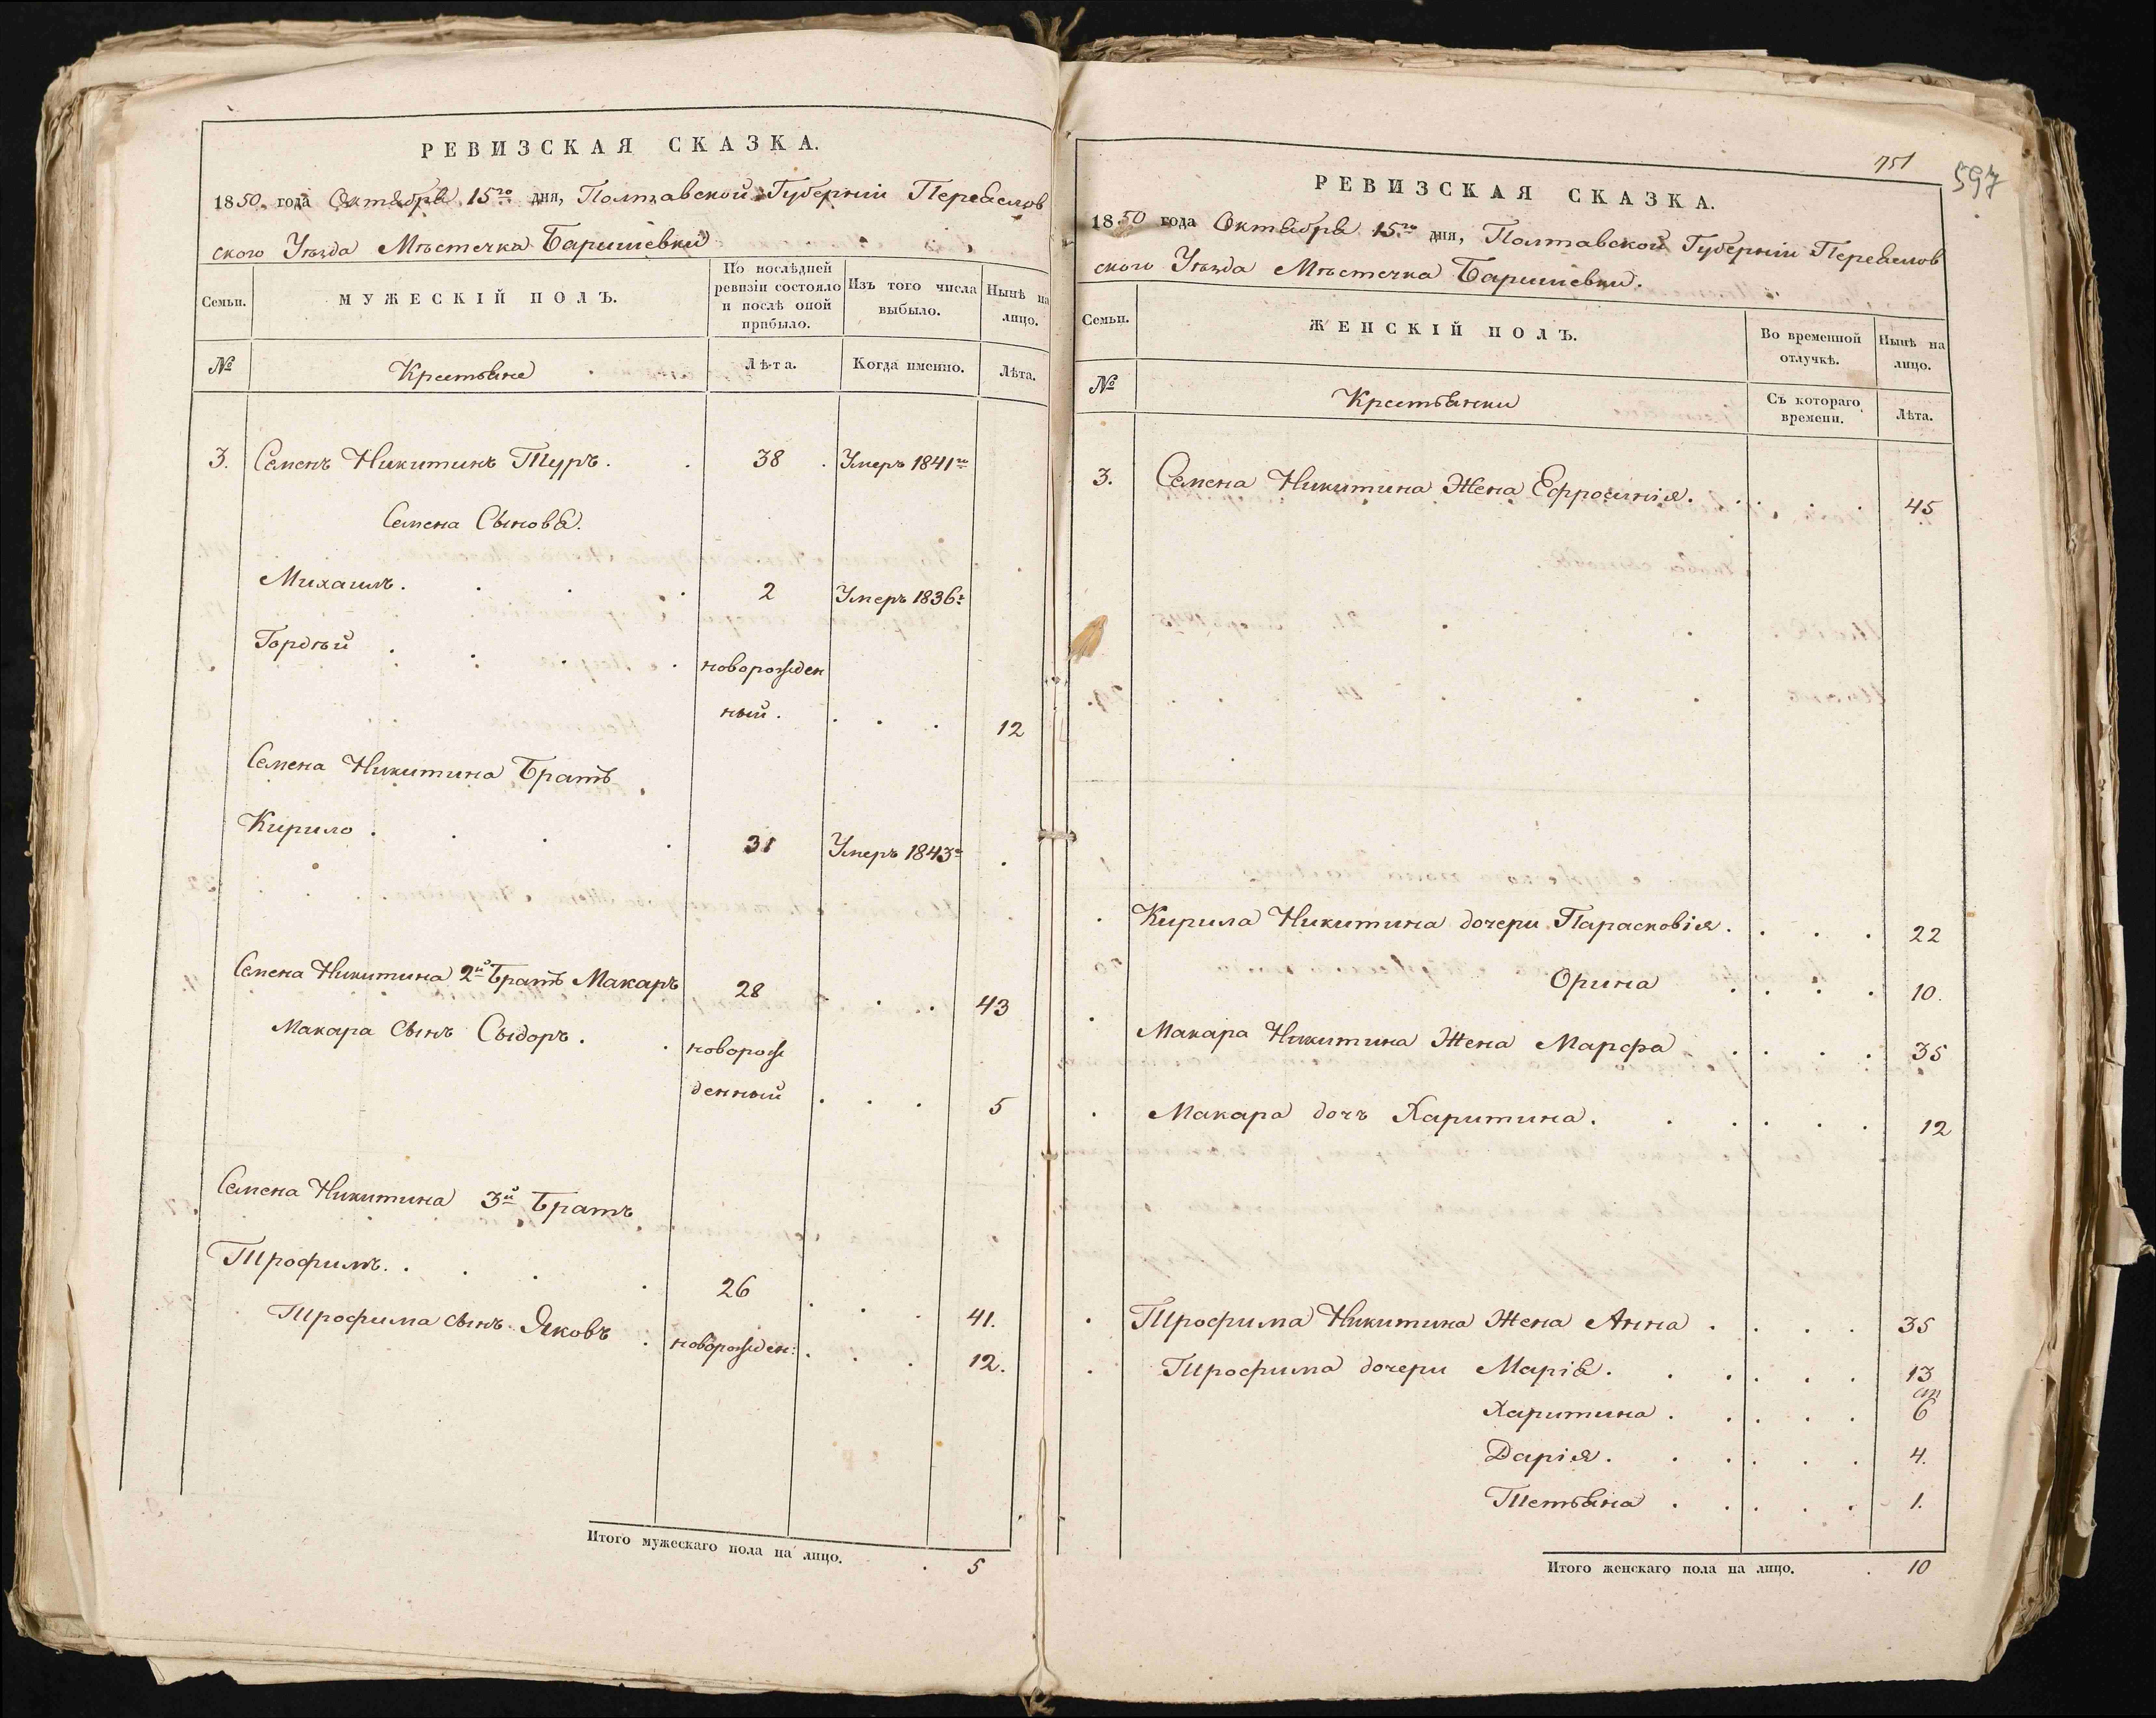 РЕВИЗСКАЯ СКАЗКА.
1850 года Октября 15го дня, Полтавской Губерніи Переяслов
ского Уѣзда Мѣстечка Баришевки
Семьи.
МУЖЕСКІЙ ПОЛЪ.
По послѣдней ревизіи состояло и послѣ оной прибыло.
Изъ того числа выбыло.
Нынѣ на лицо.
№
Крестьяне
Лѣта.
Когда именно.
Лѣта.
3. Семенъ Никитинъ Туръ. 38 Умеръ 1841го
Семена Сыновья.
Михаилъ. 2 Умеръ 1836г
Гордѣй новорожден
ный. 12
Семена Никитина Братъ
Кирило 31 Умеръ 1843г
Семена Никитина 2й Братъ Макаръ 28 43
Макара Сынъ Сыдоръ. новорож
денный 5
Семена Никитина 3й Братъ
Трофимъ. 26 41.
Трофима сынъ Яковъ новорожден: 12.
Итого мужескаго пола на лицо. 5
751
597
РЕВИЗСКАЯ СКАЗКА.
1850 года Октября 15го дня, Полтавской Губерніи Переяслов
ского Уѣзда Мѣстечка Баришевки.
Семьи.
ЖЕНСКІЙ ПОЛЪ.
Во временной отлучкѣ.
Нынѣ на лицо.
№
Крестьянки
Съ котораго времени.
Лѣта.
3. Семена Никитина Жена Ефросинія. 45
Кирила Никитина дочери Парасковія. 22
Орина 10.
Макара Никитина Жена Марфа 35
Макара дочъ Харитина. 12
Трофима Никитина Жена Анна 35
Трофима дочери Марія. 13
Харитина 6
Дарія. 4.
Тетьяна 1.
Итого женскаго пола на лицо. 10